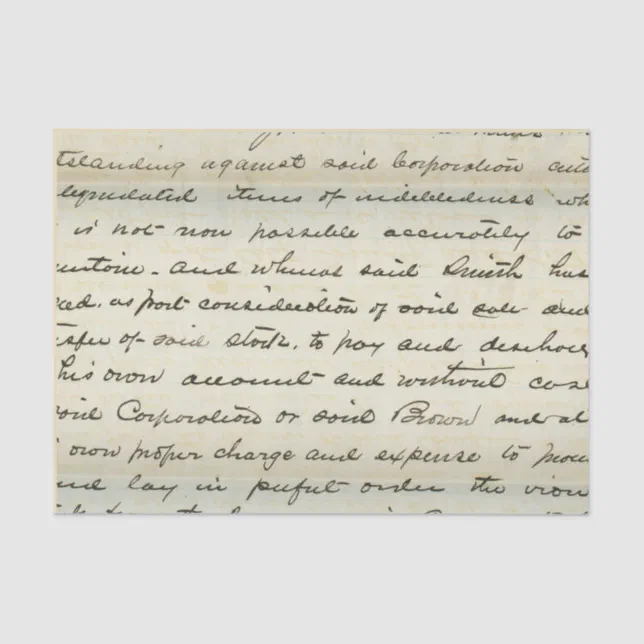 tstanding against said Corporation and
liquidated items of indebtedness wh
is not now possible accurately to
and whereas said Smith has
as part consideration of said sale and
nsfer of said stock, to pay and discharg
his own account and without cost
said Corporation or said Brown and at
own proper charge and expense to
and lay in perfect order the iron